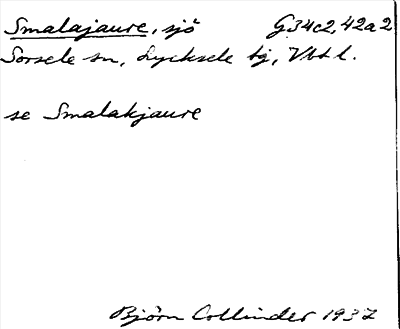 Smalajaure, sjö G34c2, 42a2
Sorsele sn, Lycksele tg, Vbtl.
se Smalakjaure
Björn Collinder 1937